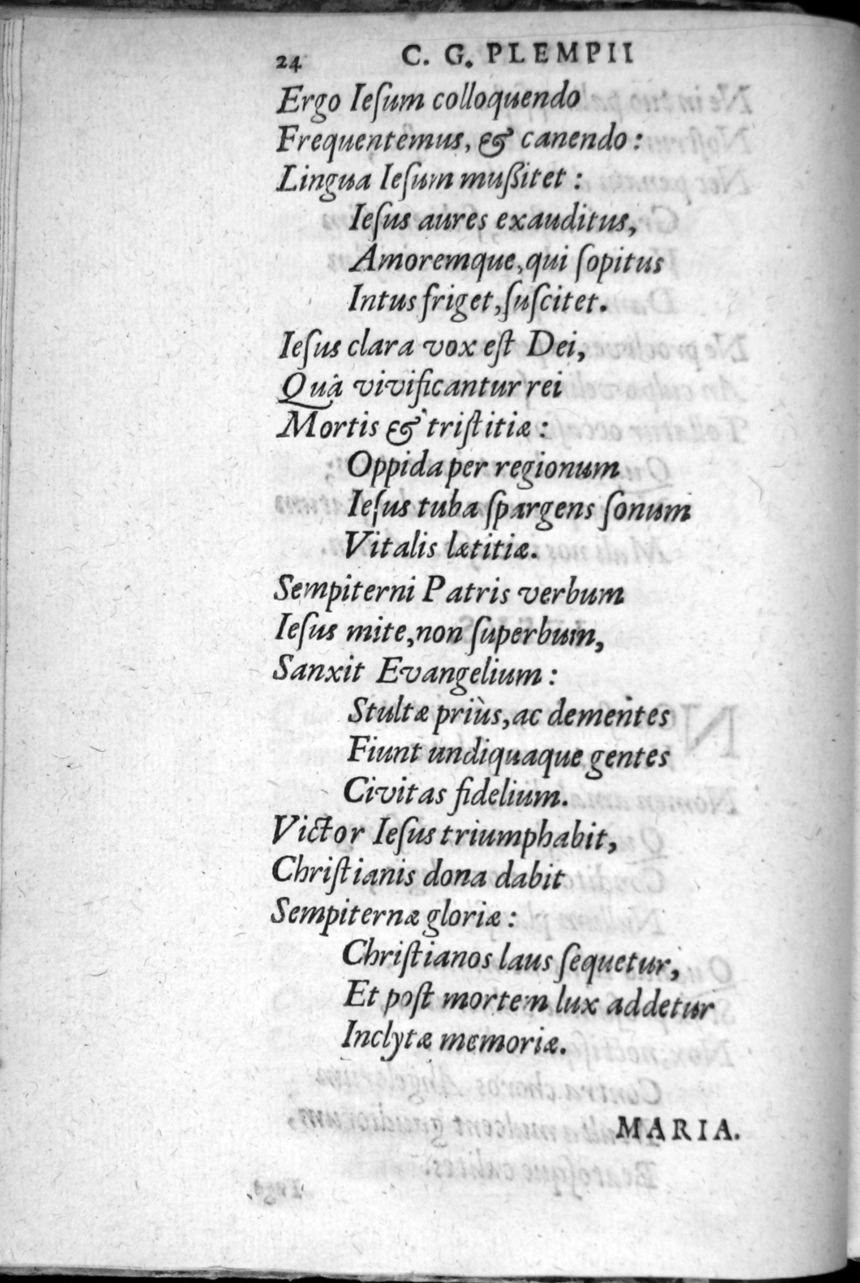 24 C. G. PLEMPII
Ergo Ieſum colloquendo
Frequentemus, & canendo:
Lingua Ieſum muſsitet:
Ieſus aures exauditus,
Amoremque, qui ſopitus
Intus friget, ſuſcitet.
Ieſus clara vox eſt Dei,
Quâ vivificantur rei
Mortis & tristitiæ:
Oppida per regionum
Ieſus tuba ſpargens ſonum
Vitalis lætitiæ.
Sempiterni Patris verbum
Ieſus mite, non ſuperbum,
Sanxit Evangelium:
Stultæ priùs, ac dementes
Fiunt undiquaque gentes
Civitas fidelium.
Victor Ieſus triumphabit,
Chriſtianis dona dabit
Sempiternæ gloriæ:
Chriſtianos laus ſequetur,
Et poſt mortem lux addetur
Inclytæ memoriæ.
MARIA.